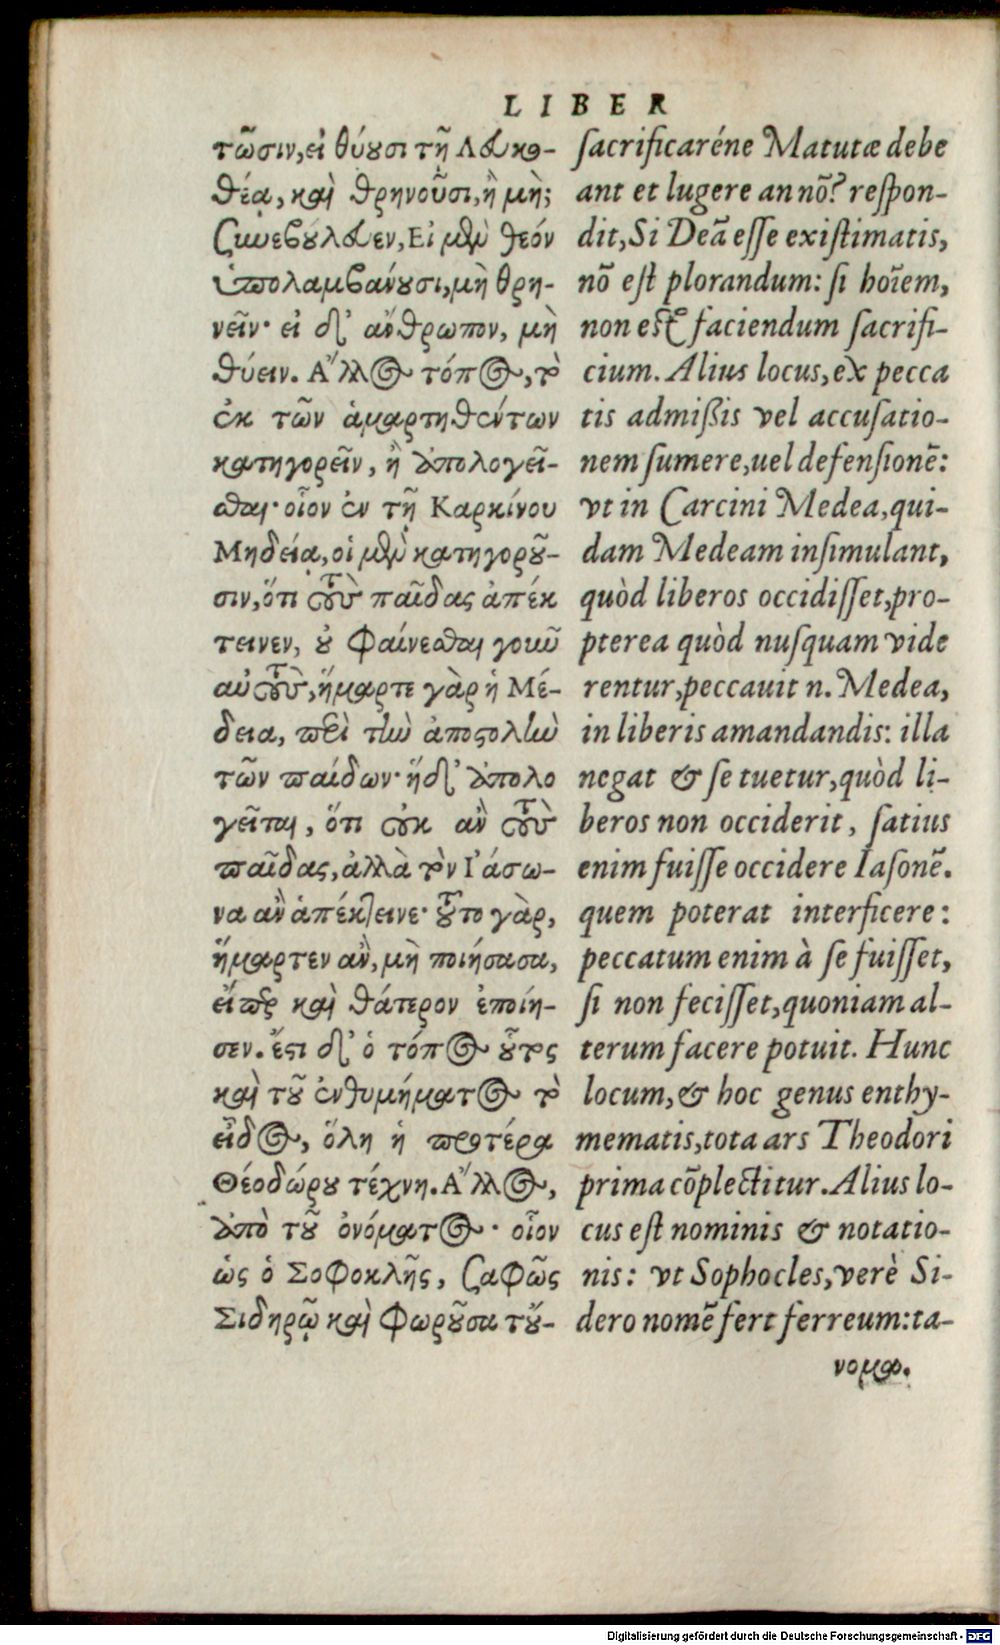 LIBER
τῶσιν, εἰ θύουσι τῇ Λευκο-
θέᾳ, καὶ θρηνοῦσι, ἢ μὴ;
συνεβούλευεν, Εἰ μὲν θεόν
ὑπολαμβάνουσι, μὴ θρη-
νεῖν· εἰ δ' ἄνθρωπον, μὴ
θύειν. Ἄλλος τόπος, τὸ
ἐκ τῶν ἁμαρτηθέντων
κατηγορεῖν, ἢ ἀπολογεῖ-
σθαι· οἷον ἐν τῇ Καρκίνου
Μηδείᾳ, οἱ μὲν κατηγοροῦ-
σιν, ὅτι τοὺς παῖδας ἀπέκ
τεινεν, οὐ φαίνεσθαι γοῦν
αὐτοὺς, ἥμαρτε γὰρ ἡ Μέ-
δεια, περὶ τὴν ἀποστολὴν
τῶν παίδων· ἡ δ' ἀπολο
γεῖται, ὅτι οὐκ ἂν τοὺς
παῖδας, ἀλλὰ τὸν Ἰάσω-
να ἂν ἀπέκτεινε· τοῦτο γὰρ,
ἥμαρτεν ἂν, μὴ ποιήσασα,
εἴπερ καὶ θάτερον ἐποίη-
σεν. ἔστι δ' ὁ τόπος οὗτος
καὶ τοῦ ἐνθυμήματος τὸ
εἶδος, ὅλη ἡ προτέρα
Θέοδώρου τέχνη. Ἄλλος,
ἀπὸ τοῦ ὀνόματος· οἷον
ὡς ὁ Σοφοκλῆς, σαφῶς
Σιδηρῷ καὶ φωροῦσα τού-
sacrificaréne Matutæ debe
ant et lugere an nō? respon-
dit, Si Deā esse existimatis,
nō est plorandum: si hoīem,
non est faciendum sacrifi-
cium. Alius locus, ex pecca
tis admißis vel accusatio-
nem sumere, uel defensionē:
vt in Carcini Medea, qui-
dam Medeam insimulant,
quòd liberos occidisset, pro-
pterea quòd nusquam vide
rentur, peccauit n. Medea,
in liberis amandandis: illa
negat & se tuetur, quòd li-
beros non occiderit, satius
enim fuisse occidere Iasonē.
quem poterat interficere:
peccatum enim à se fuisset,
si non fecisset, quoniam al-
terum facere potuit. Hunc
locum, & hoc genus enthy-
mematis, tota ars Theodori
prima cōplectitur. Alius lo-
cus est nominis & notatio-
nis: vt Sophocles, verè Si-
dero nomē fert ferreum: ta-
νομα.
Digitalisierung gefördert durch die Deutsche Forschungsgemeinschaft - DFG